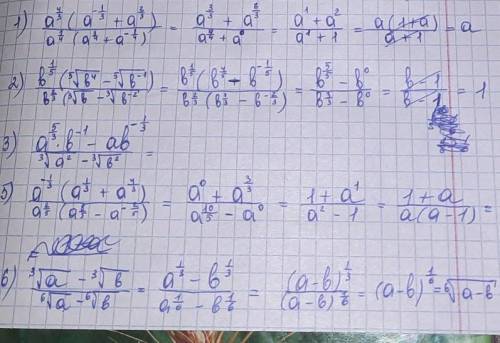 1) a^{4/3}(a^{-1/3} + a^{2/3}) / a^{1/4}(a^{3/4} + a^{-1/4}) = (a^{3/3} + a^{6/3}) / (a^{4/4} + a^0) = (a^1 + a^2) / (a^1 + 1) = a(1+a) / (a+1) = a
2) b^{1/5}(\sqrt[5]{b^4} - \sqrt[5]{b^{-1}}) / b^{2/3}(\sqrt[3]{b} - \sqrt[3]{b^{-2}}) = b^{1/5}(b^{4/5} - b^{-1/5}) / b^{2/3}(b^{1/3} - b^{-2/3}) = (b^{5/5} - b^0) / (b^{3/3} - b^0) = (b-1) / (b-1) = 1
3) (a^{5/3} · b^{-1} - ab^{-1/3}) / (\sqrt[3]{a^2} - \sqrt[3]{b^2}) =
5) (a^0 + a^{3/3}) / (a^{10/5} - a^0) = (1 + a^1) / (a^2 - 1) = (1 + a) / a(a-1) =
6) (\sqrt[3]{a} - \sqrt[3]{b}) / (\sqrt[6]{a} - \sqrt[6]{b}) = (a^{1/3} - b^{1/3}) / (a^{1/6} - b^{1/6}) = (a-b)^{1/3} / (a-b)^{1/6} = (a-b)^{1/6} = \sqrt[6]{a-b}